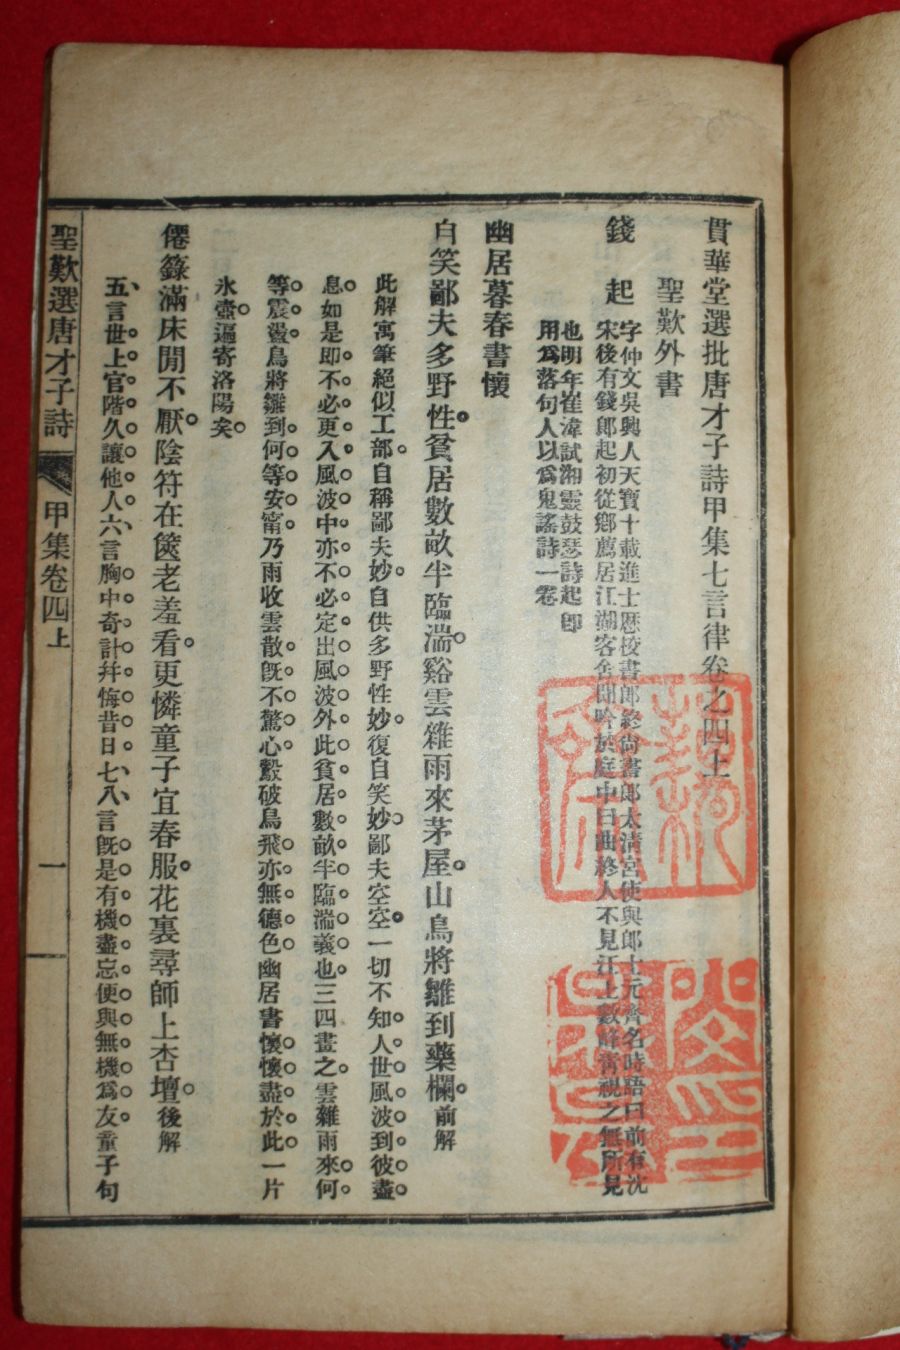 貫華堂選批唐才子詩甲集七言律卷之四上
聖歎外書
錢起
字仲文吳興人天寶十載進士歷校書郎終尚書郎太清宮使與郎士元齊名時語曰前有沈
宋後有錢郎起初從鄉薦居江湖客舍聞吟於庭中曰曲終人不見江上數峰靑視之無所見
也明年崔湋試湘靈鼓瑟詩起卽
用爲落句人以爲鬼謠詩一卷
幽居暮春書懷
自笑鄙夫多野性。貧居數畝半臨湍。谿雲雜雨來茅屋。山鳥將雛到藥欄。前解
此解寓筆絕似工部。自稱鄙夫妙。自供多野性妙。復自笑妙。鄙夫空空。一切不知。人世風波到彼盡
息。如是卽不必更入風波中。亦不必定出風波外。此貧居數畝半臨湍義也。三四畫之。雲雜雨來。何
等震盪。鳥將雛到。何等安甯。乃雨收雲散。旣不驚心。鷇破鳥飛。亦無德色。幽居書懷。懷盡於此。一片
氷壺。逼寄洛陽矣。
僊籙滿床閒不厭。陰符在篋老羞看。更憐童子宜春服。花裏尋師上杏壇。後解
五、言世上官階久讓他人。六、言胸中奇計幷悔昔日。七、八、言旣是有機盡忘。便與無機爲友。童子句
聖歎選唐才子詩
甲集卷四上
一